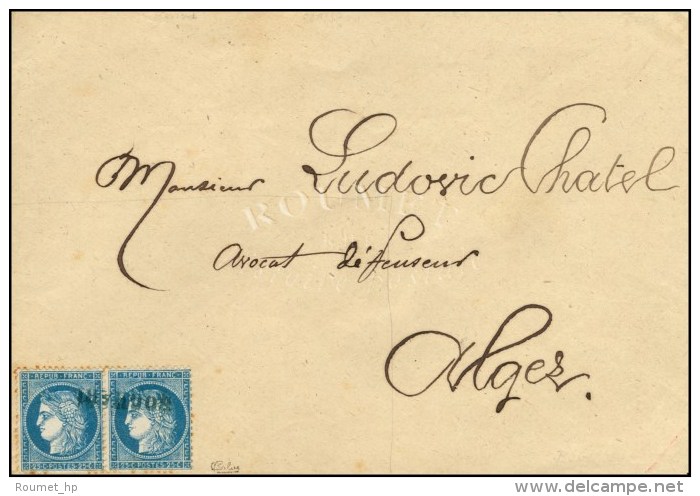 Monsieur Ludovic Chatel
ROUMET
Avocat défenseur
Alger.
REPUB. FRANC. REPUB. FRANC.
25 C. POSTES 25 C. 25 C. POSTES 25 C.
Roumet_hp
delcampe.net